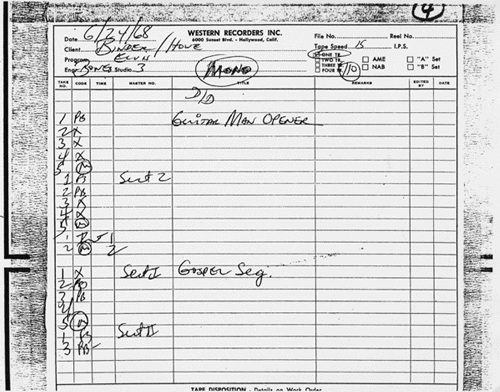 4
Date 6/24/68
WESTERN RECORDERS INC.
6000 Sunset Blvd. - Hollywood, Calif.
File No.
Reel No.
Client BINDER/HOWE
Tape Speed 15 I.P.S.
Program ELVIS
ONE TR.
TWO TR.
THREE TR.
FOUR TR.
AME
NAB
"A" Set
"B" Set
Engr. BONES Studio 3
MONO
TAKE NO.
CODE
TIME
MASTER NO.
TITLE
REMARKS
EDITED BY
DATE
D/D
1 PB GUITAR MAN OPENER
2 X
3 X
4 X
5 M
1 Sect 2
2 PB
3 X
4 X
5 M
2 M 2
1 X Sect I GOSPEL Seg.
2 PB
3 PB
4
5
1 PB Sect II
3 PB
TAPE DISPOSITION - Details on Work Order